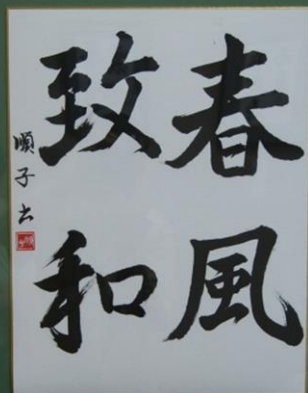 春風
致和
順子书